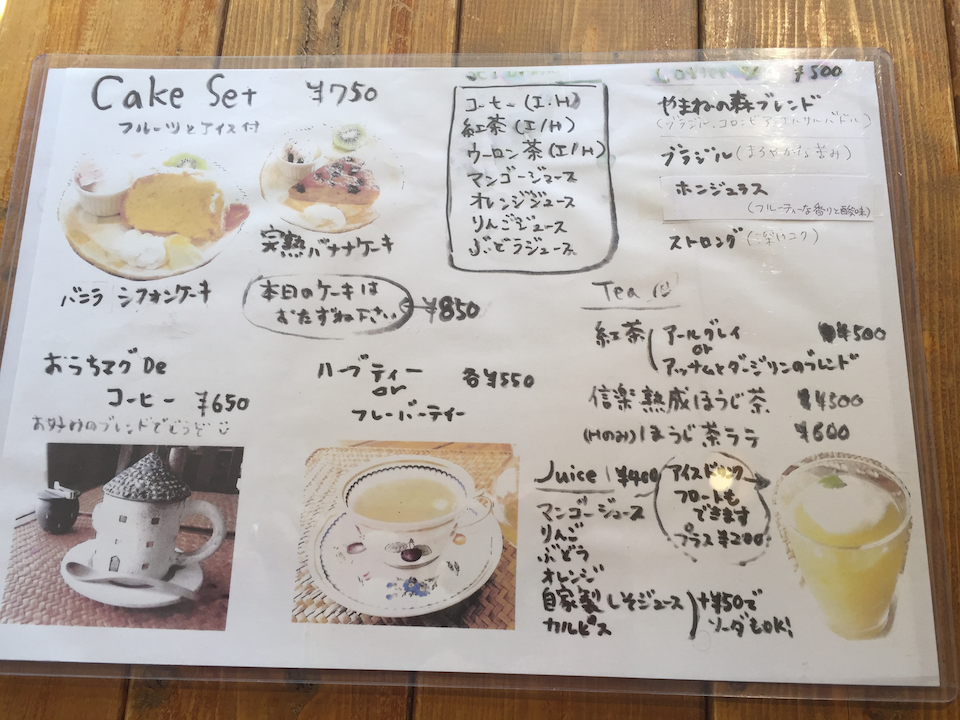 Cake Set ¥750
フルーツとアイス付
バニラシフォンケーキ
完熟バナナケーキ
本日のケーキは
おたずね下さい
¥850
コーヒー(I・H)
紅茶(I/H)
ウーロン茶(I/H)
マンゴージュース
オレンジジュース
りんごジュース
ぶどうジュース
Coffee ¥500
やまねの森ブレンド
(ブラジル、コロンビア、エルサルバドル)
ブラジル(まろやかな苦み)
ホンジュラス
(フルーティーな香りと酸味)
ストロング(深いコク)
おうちマグDe
コーヒー ¥650
お好みのブレンドでどうぞ
ハーブティー
or
フレーバーティー
各¥550
Tea
紅茶 アールグレイ ¥500
or
アッサムとダージリンのブレンド
信楽熟成ほうじ茶 ¥500
(Hのみ)ほうじ茶ラテ ¥600
Juice ¥400
マンゴージュース
りんご
ぶどう
オレンジ
自家製しそジュース
カルピス
+¥50で
ソーダもOK!
アイスドリンク
フロートも
できます
プラス¥200